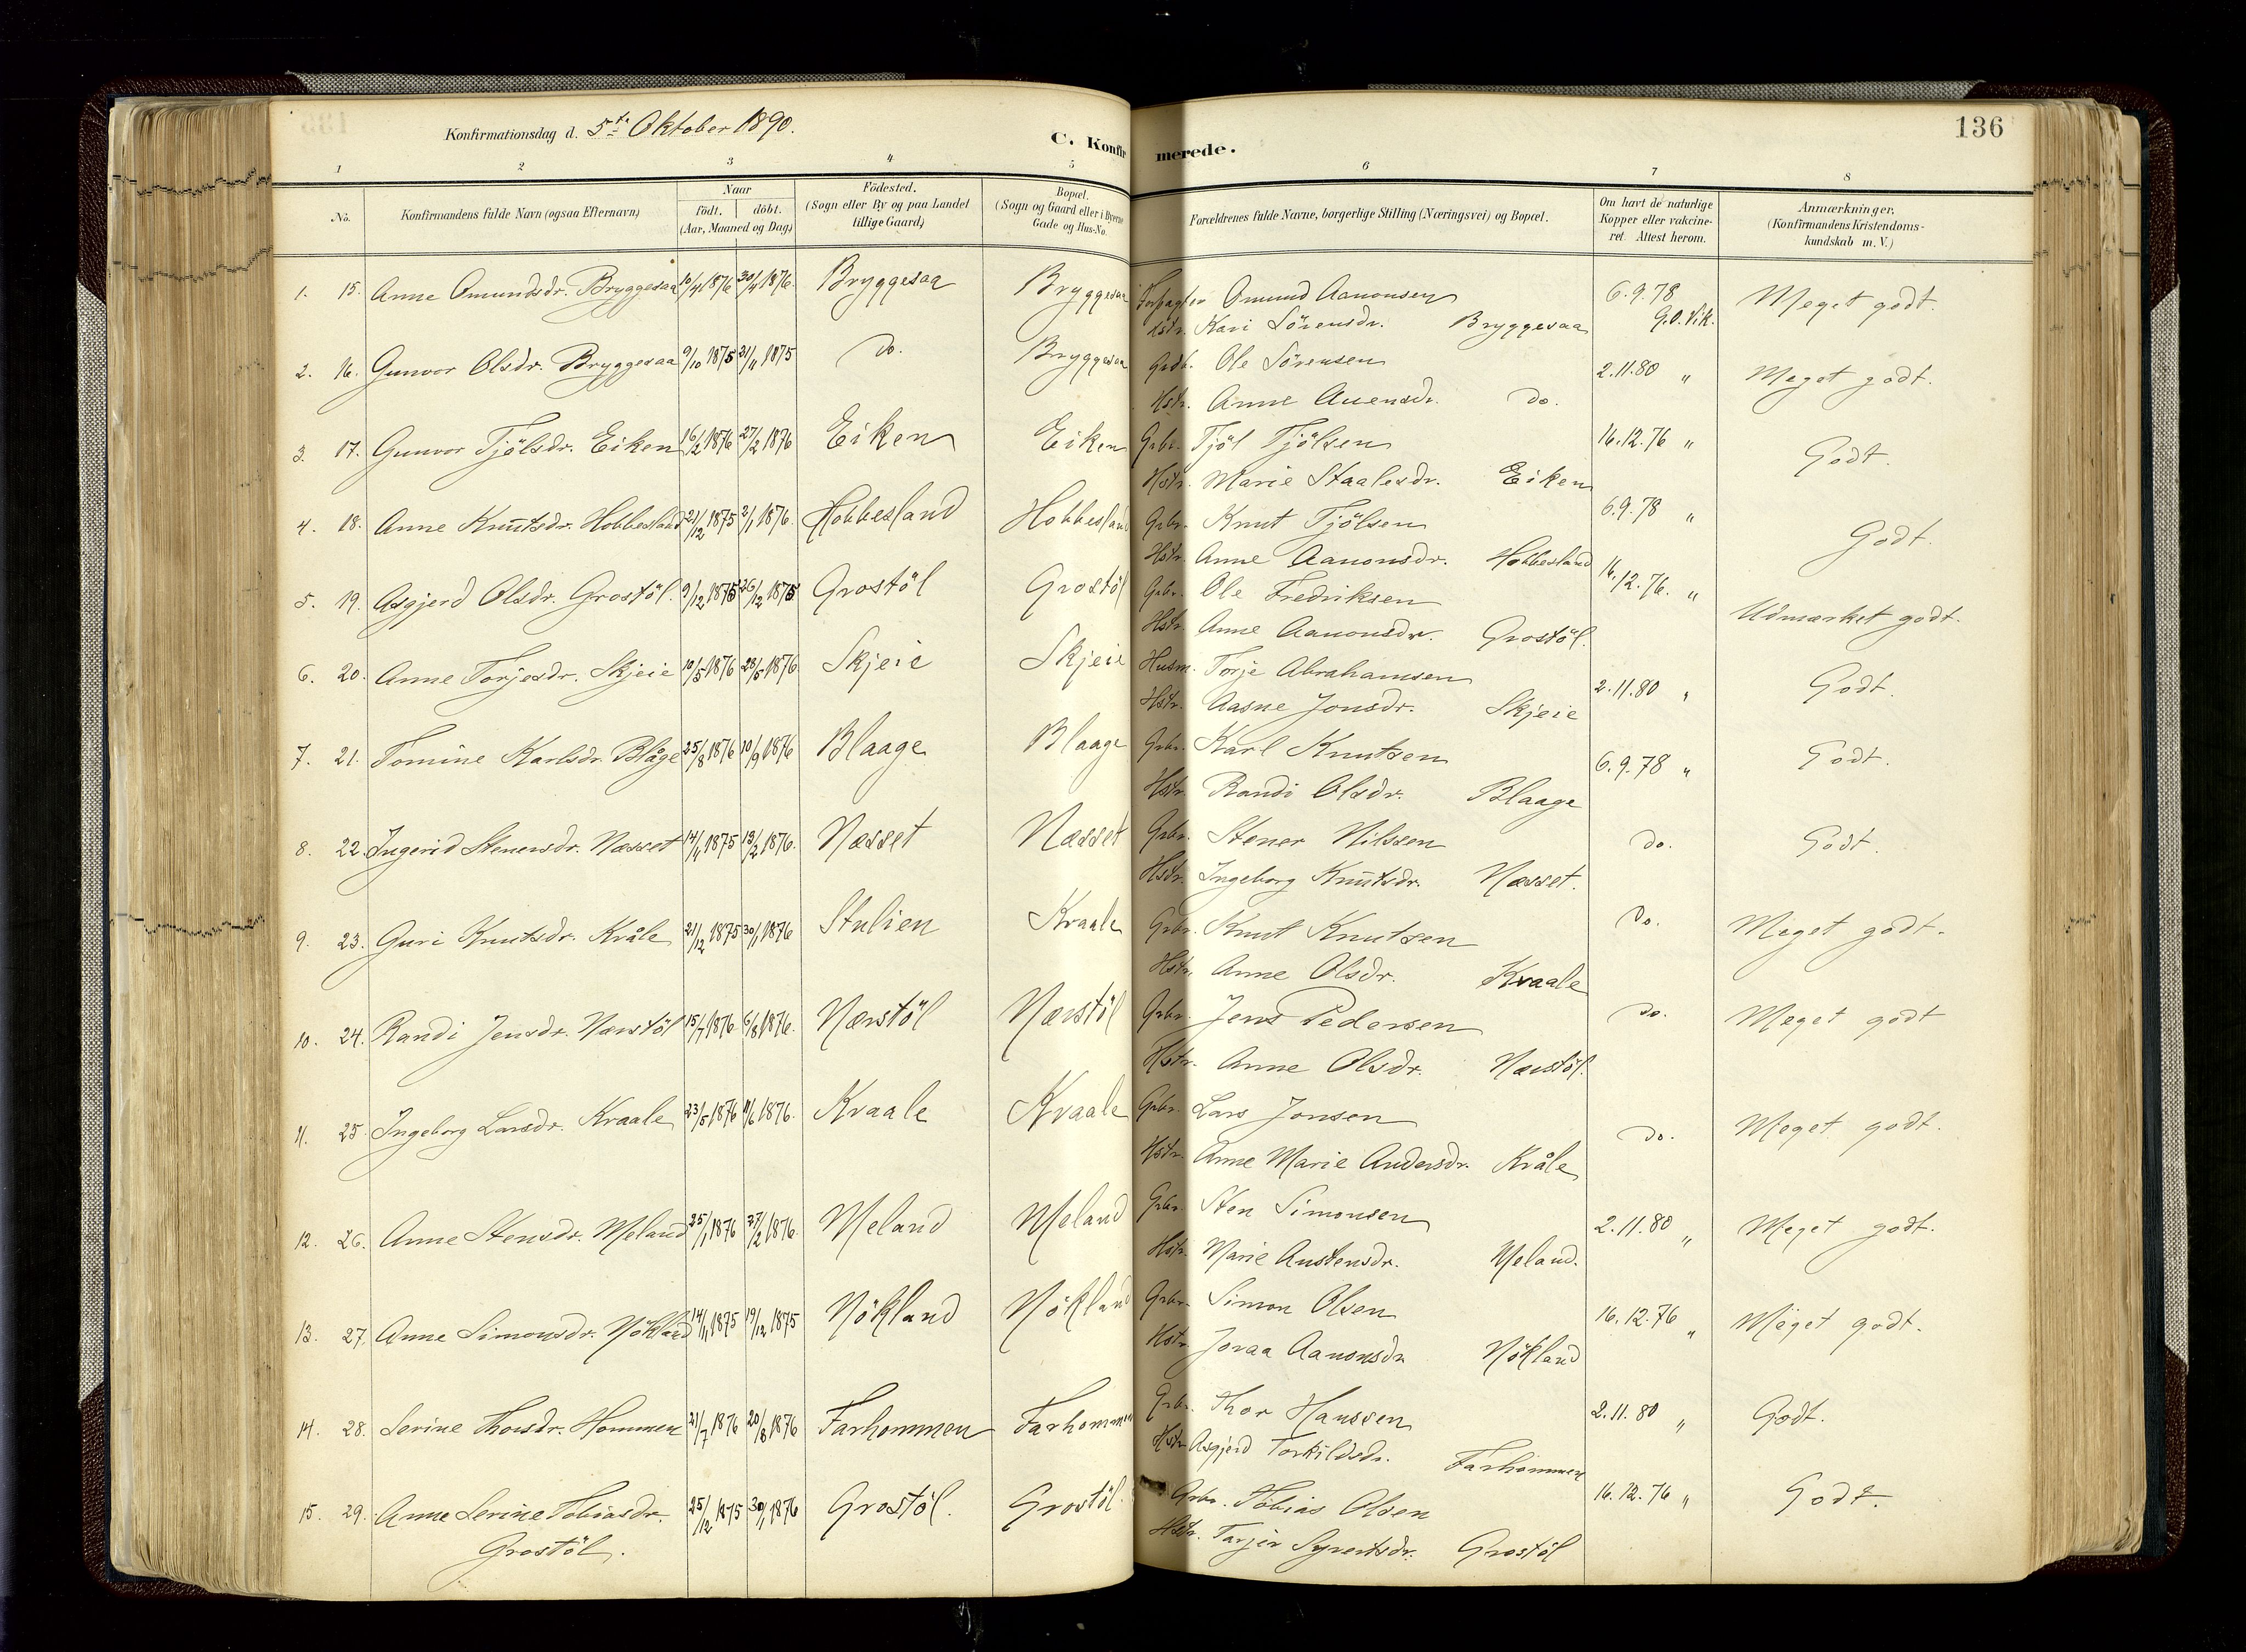 Konfirmationsdag d. 5te Oktober 1890.
C. Konfirmerede.
136
1 2 3 4 5 6 7 8
No. Konfirmandens fulde Navn (ogsaa Efternavn) Naar födt. döbt. (Aar, Maaned og Dag) Födested. (Sogn eller By og paa Landet tillige Gaard) Bopæl. (Sogn og Gaard eller i Byerne Gade og Hus-No. Forældrenes fulde Navne, borgerlige Stilling (Næringsvei) og Bopæl. Om havt de naturlige Kopper eller vakcineret. Attest herom. Anmærkninger. (Konfirmandens Kristendomskundskab m. V.)
1. 15. Anne Omundsdr. Bryggesaa 10/4 1876 30/4 1876. Bryggesaa Bryggesaa Forpagter Omund Aanonsen 6.9.78 G.O. Vik. Meget godt.
Hstr. Kari Sörensdr. Bryggesaa
2. 16. Gunvor Olsdr. Bryggesaa 9/10 1875 21/11 1875 do. Bryggesaa Grdb. Ole Sörensen 2.11.80 " Meget godt.
Hstr. Anne Auensdr. do.
3. 17. Gunvor Tjölsdr. Eiken 16/2 1876 27/2 1876 Eiken Eiken Grbr. Tjöl Tjölsen 16.12.76 " Godt.
Hstr. Marie Staalesdr. Eiken
4. 18. Anne Knutsdr. Hobbesland 21/12 1875 2/1 1876. Hobbesland Hobbesland Grbr. Knut Tjölsen 6.9.78 " Godt.
Hstr. Anne Aanonsdr. Hobbesland
5. 19. Asgjerd Olsdr. Grostöl. 9/12 1875 26/12 1875 Grostöl Grostöl Grbr. Ole Fredriksen 16.12.76. " Udmærket godt.
Hstr. Anne Aanonsdr. Grostöl.
6. 20. Anne Torjesdr. Skjeie 10/5 1876 28/5 1876 Skjeie Skjeie Husm. Torje Abrahamsen 2.11.80 " Godt.
Hstr. Aasne Jonsdr. Skjeie
7. 21. Tomine Karlsdr. Blåge 25/8 1876 10/9 1876 Blaage Blaage Grbr. Karl Knutsen 6.9.78 " Godt.
Hstr. Randi Olsdr. Blaage
8. 22. Ingerid Stenersdr. Næsset 14/11 1875 13/2 1876. Næsset Næsset Grbr. Stener Nilssen do. Godt.
Hstr. Ingeborg Knutsdr. Næsset.
9. 23. Guri Knutsdr. Kråle 21/12 1875 30/1 1876 Stulien Kraale Grbr. Knut Knutsen Do. Meget godt.
Hstr. Anne Olsdr. Kvaale
10. 24. Randi Jensdr. Nærstöl 15/7 1876 6/8 1876. Nærstöl Nærstöl Grbr. Jens Pedersen do. Meget godt
Hstr. Anne Olsdr. Nærstöl.
11. 25. Ingeborg Larsdr. Kraale 23/5 1876 11/6 1876. Kraale Kraale Grbr. Lars Jonsen do. Meget godt.
Hstr. Anne Marie Andersdr. Kråle
12. 26. Anne Stensdr. Meland 25/1 1876 27/2 1876 Meland Meland Grbr. Sten Simonsen 2.11.80 " Meget godt.
Hstr. Marie Austensdr. Meland.
13. 27. Anne Simonsdr. Nökland 14/11 1875 19/12 1875 Nökland Nökland Grbr. Simon Olsen 16.12.76 " Meget godt.
Hstr. Joraa Aanonsdr. Nökland
14. 28. Serine Thorsdr. Hommen 21/7 1876 20/8 1876 Farhommen Farhommen Grbr. Thor Hanssen 2.11.80 " Godt.
Hstr. Asgjerd Torkildsdr. Farhommen
15. 29. Anne Serine Tobiasdr. 25/12 1875 30/1 1876 Grostöl. Grostöl. Grbr. Tobias Olsen 16.12.76 " Godt.
Grostöl. Hstr. Tarjer Syvertsdr. Grostöl